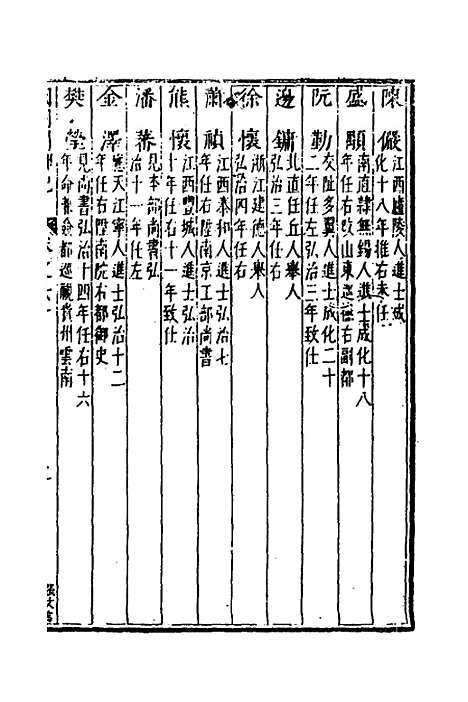 陳儼 江西盧陵人進士成
化十八年推右未任
盛顒 南直隸無錫人進士成化十八
年任右改山東巡撫右副都
阮勤 交阯多翼人進士成化二十
二年任左弘治三年致仕
邊鏞 北直任丘人舉人
弘治三年任右
徐懷 浙江建德人舉人
弘治四年任右
蕭禎 江西泰和人進士弘治七
年任右陞南京工部尚書
熊懷 江西豐城人進士弘治
十年任右十一年致仕
潘蕃 見本部尚書弘
治十一年任左
金澤 應天江寧人進士弘治十二
年任右陞南院右都御史
樊瑩 見尚書弘治十四年任右十六
年命兼僉都巡視貴州雲南